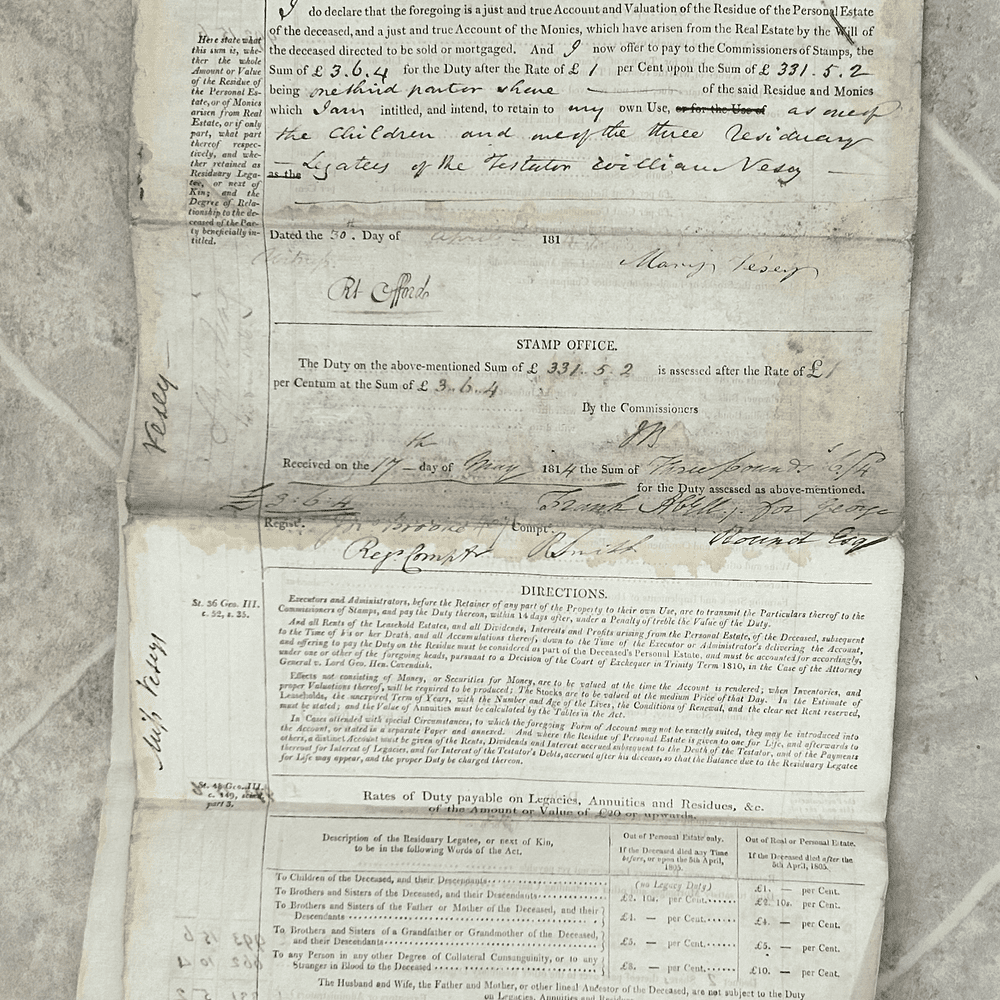 I do declare that the foregoing is a just and true Account and Valuation of the Residue of the Personal Estate
of the deceased, and a just and true Account of the Monies, which have arisen from the Real Estate by the Will of
the deceased directed to be sold or mortgaged. And I now offer to pay to the Commissioners of Stamps, the
Sum of £ 3.6.4 for the Duty after the Rate of £ 1 per Cent upon the Sum of £ 331.5.2
being one third part or share of the said Residue and Monies
which I am intitled, and intend, to retain to my own Use, or for the Use of as one of
the Children and one of the three residuary
as the Legatees of the Testator William Vesey
Here state what
this sum is, whe-
ther the whole
Amount or Value
of the Residue of
the Personal Es-
tate, or of Monies
arisen from Real
Estate, or if only
part, what part
thereof respec-
tively, and whe-
ther retained as
Residuary Lega-
tee, or next of
Kin; and the
Degree of Rela-
tionship to the de-
ceased of the Par-
ty beneficially in-
titled.
Dated the 30th. Day of April 181
Mary Vesey
Rt Offord
STAMP OFFICE.
The Duty on the above-mentioned Sum of £ 331.5.2 is assessed after the Rate of £1
per Centum at the Sum of £ 3.6.4
By the Commissioners
Vesey
Received on the 17th day of May 1814 the Sum of Three pounds 6/4
for the Duty assessed as above-mentioned.
£3:6:4 Frank for George
Round Esq
Regist. Brooke Compt.
Regr Comptr R Smith
DIRECTIONS.
St. 36 Geo. III.
c. 52, s. 35.
Executors and Administrators, before the Retainer of any part of the Property to their own Use, are to transmit the Particulars thereof to the
Commissioners of Stamps, and pay the Duty thereon, within 14 days after, under a Penalty of treble the Value of the Duty.
And all Rents of the Leasehold Estates, and all Dividends, Interests and Profits arising from the Personal Estate, of the Deceased, subsequent
to the Time of his or her Death, and all Accumulations thereof, down to the Time of the Executor or Administrator's delivering the Account,
and offering to pay the Duty on the Residue must be considered as part of the Deceased's Personal Estate, and must be accounted for accordingly,
under one or other of the foregoing heads, pursuant to a Decision of the Court of Exchequer in Trinity Term 1810, in the Case of the Attorney
General v. Lord Geo. Hen. Cavendish.
Effects not consisting of Money, or Securities for Money, are to be valued at the time the Account is rendered; when Inventories, and
proper Valuations thereof, will be required to be produced; The Stocks are to be valued at the medium Price of that Day. In the Estimate of
Leaseholds, the unexpired Term of Years, with the Number and Age of the Lives, the Conditions of Renewal, and the clear net Rent reserved,
must be stated; and the Value of Annuities must be calculated by the Tables in the Act.
In Cases attended with special Circumstances, to which the foregoing Form of Account may not be exactly suited, they may be introduced into
the Account, or stated in a separate Paper and annexed. And where the Residue of Personal Estate is given to one for Life, and afterwards to
others, a distinct Account must be given of the Rents, Dividends and Interest accrued subsequent to the Death of the Testator, and of the Payments
thereout for Interest of Legacies, and for Interest of the Testator's Debts, accrued after his decease, so that the Balance due to the Residuary Legatee
for Life may appear, and the proper Duty be charged thereon.
Miss Vesey
St. 48 Geo. III.
c. 149, sched.
part 3.
Rates of Duty payable on Legacies, Annuities and Residues, &c.
of the Amount or Value of £20 or upwards.
Description of the Residuary Legatee, or next of Kin,
to be in the following Words of the Act.
Out of Personal Estate only.
If the Deceased died any Time
before, or upon the 5th April,
1805.
Out of Real or Personal Estate.
If the Deceased died after the
5th April, 1805.
To Children of the Deceased, and their Descendants (no Legacy Duty) £1. — per Cent.
To Brothers and Sisters of the Deceased, and their Descendants £2. 10s. per Cent. £2. 10s. per Cent.
To Brothers and Sisters of the Father or Mother of the Deceased, and their
Descendants £4. — per Cent. £4. — per Cent.
To Brothers and Sisters of a Grandfather or Grandmother of the Deceased,
and their Descendants £5. — per Cent. £5. — per Cent.
To any Person in any other Degree of Collateral Consanguinity, or to any
Stranger in Blood to the Deceased £8. — per Cent. £10. — per Cent.
The Husband and Wife, the Father and Mother, or other lineal Ancestor of the Deceased, are not subject to the Duty
on Legacies, Annuities and Residues.